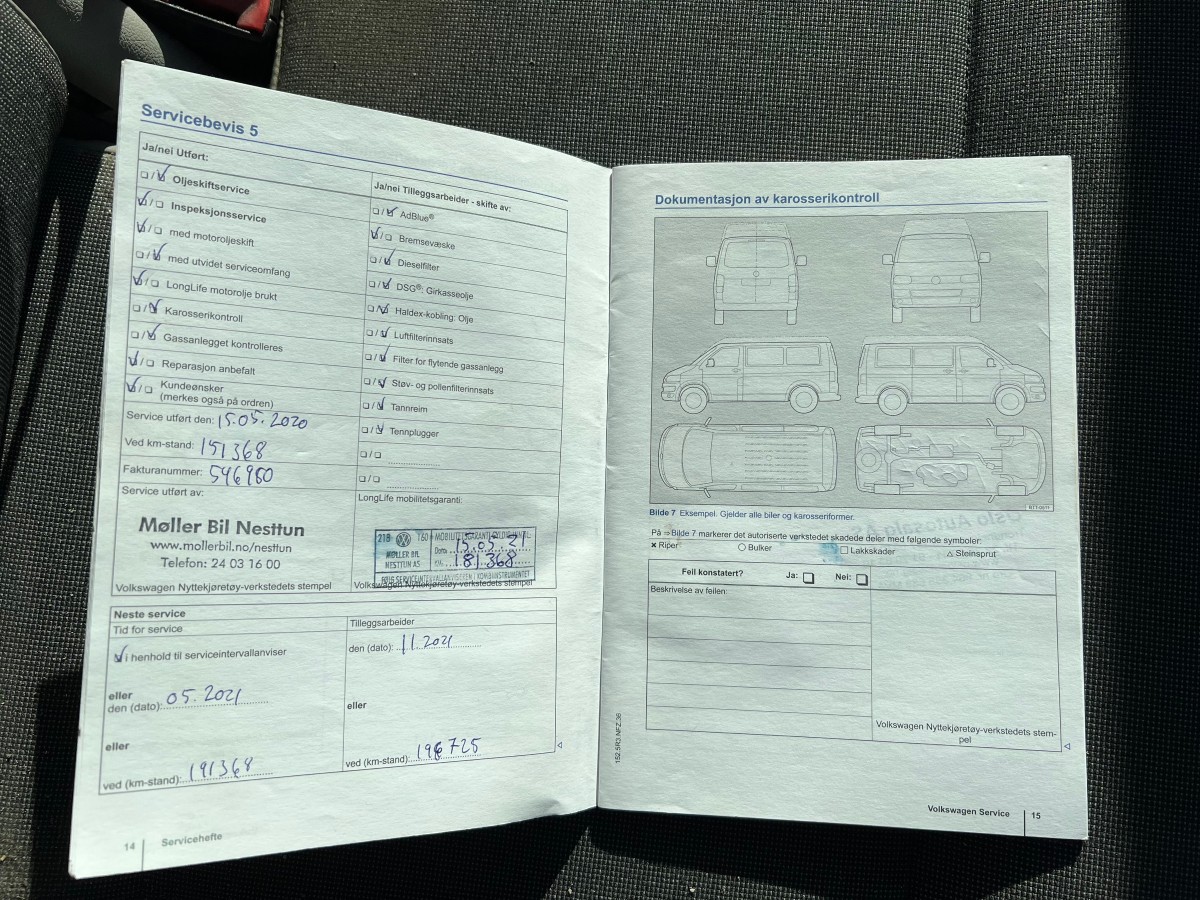 Servicebevis 5
Ja/nei Utført:
☐/☑ Oljeskiftservice
☑/☐ Inspeksjonsservice
☑/☐ med motoroljeskift
☐/☑ med utvidet serviceomfang
☑/☐ LongLife motorolje brukt
☐/☑ Karosserikontroll
☐/☑ Gassanlegget kontrolleres
☑/☐ Reparasjon anbefalt
☑/☐ Kundeønsker
(merkes også på ordren)
Service utført den: 15.05.2020
Ved km-stand: 151368
Fakturanummer: 546980
Service utført av:
Møller Bil Nesttun
www.mollerbil.no/nesttun
Telefon: 24 03 16 00
Volkswagen Nyttekjøretøy-verkstedets stempel
Ja/nei Tilleggsarbeider - skifte av:
☐/☑ AdBlue®
☑/☐ Bremsevæske
☐/☑ Dieselfilter
☐/☑ DSG®: Girkasseolje
☐/☑ Haldex-kobling: Olje
☐/☑ Luftfilterinnsats
☐/☑ Filter for flytende gassanlegg
☐/☑ Støv- og pollenfilterinnsats
☐/☑ Tannreim
☐/☑ Tennplugger
☐/☐
☐/☐
LongLife mobilitetsgaranti:
218
MØLLER BIL
NESTTUN AS
Dato 15.05.21
181.368
Volkswagen Nyttekjøretøy-verkstedets stempel
Neste service
Tid for service
☑ i henhold til serviceintervallanviser
eller
den (dato): 05.2021
eller
ved (km-stand): 191368
Tilleggsarbeider
den (dato): 11.2021
eller
ved (km-stand): 196725
14 Servicehefte
Dokumentasjon av karosserikontroll
BTT-0511
Bilde 7 Eksempel. Gjelder alle biler og karosseriformer.
På ⇒ Bilde 7 markerer det autoriserte verkstedet skadede deler med følgende symboler:
✕ Riper ○ Bulker ☐ Lakkskader △ Steinsprut
Fell konstatert? Ja: ☐ Nei: ☐
Beskrivelse av feilen:
Volkswagen Nyttekjøretøy-verkstedets stem-
pel
152.5R3.NFZ.36
Volkswagen Service 15